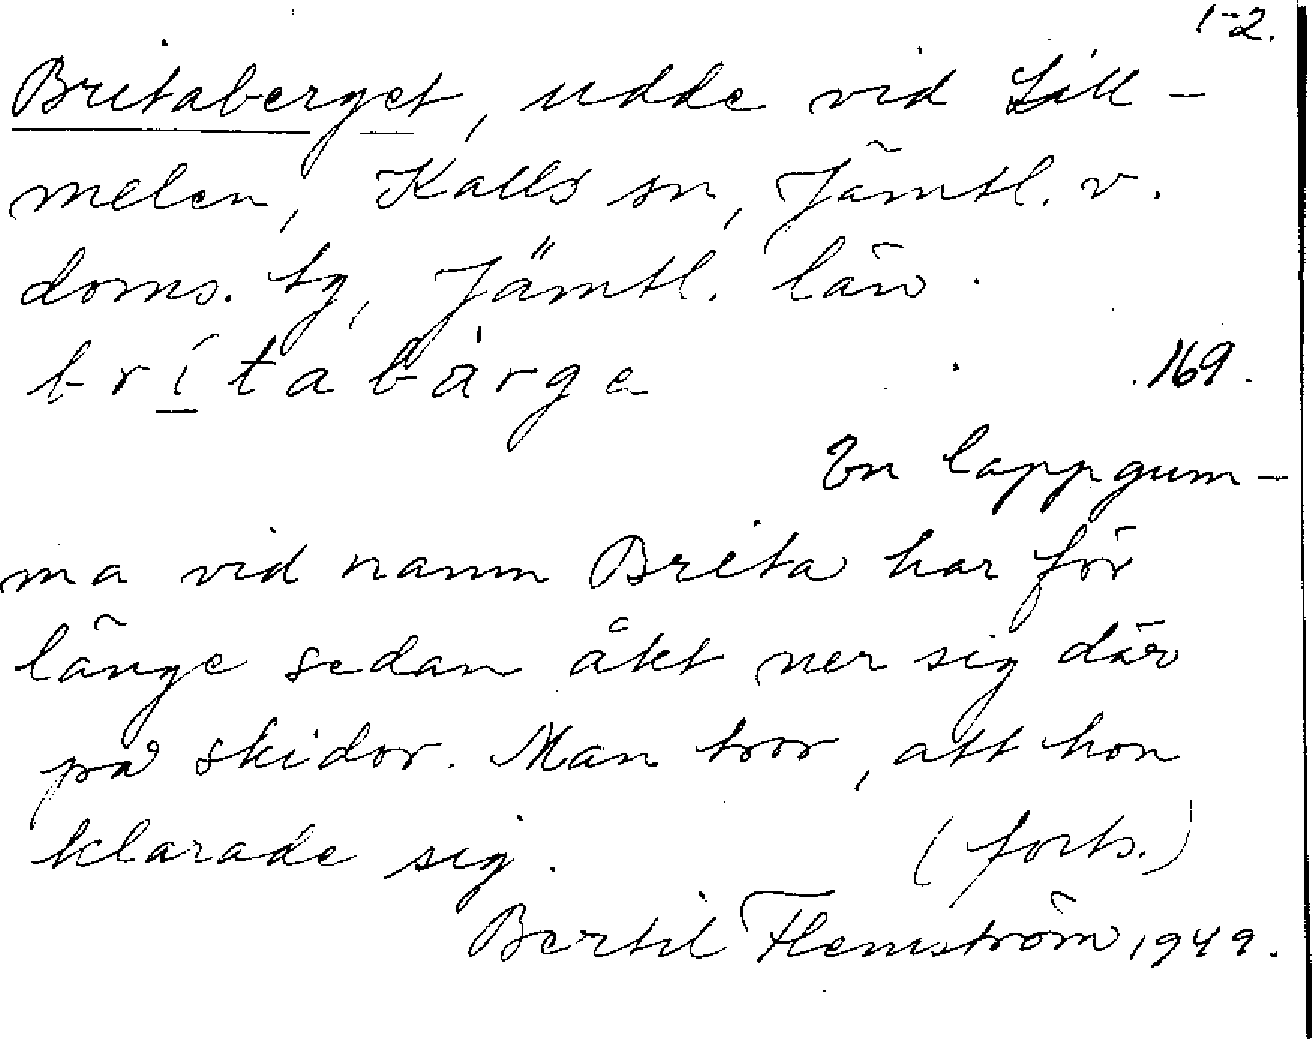 1-2.
Britaberget, udde vid Lill-
melen, Kalls sn, Jämtl. v.
doms. tg, Jämtl. län.
brítabàrge 169.
En lappgum-
ma vid namn Brita har för
länge sedan åkt ner sig där
på skidor. Man tror, att hon
klarade sig. (forts.)
Bertil Flemström, 1949.